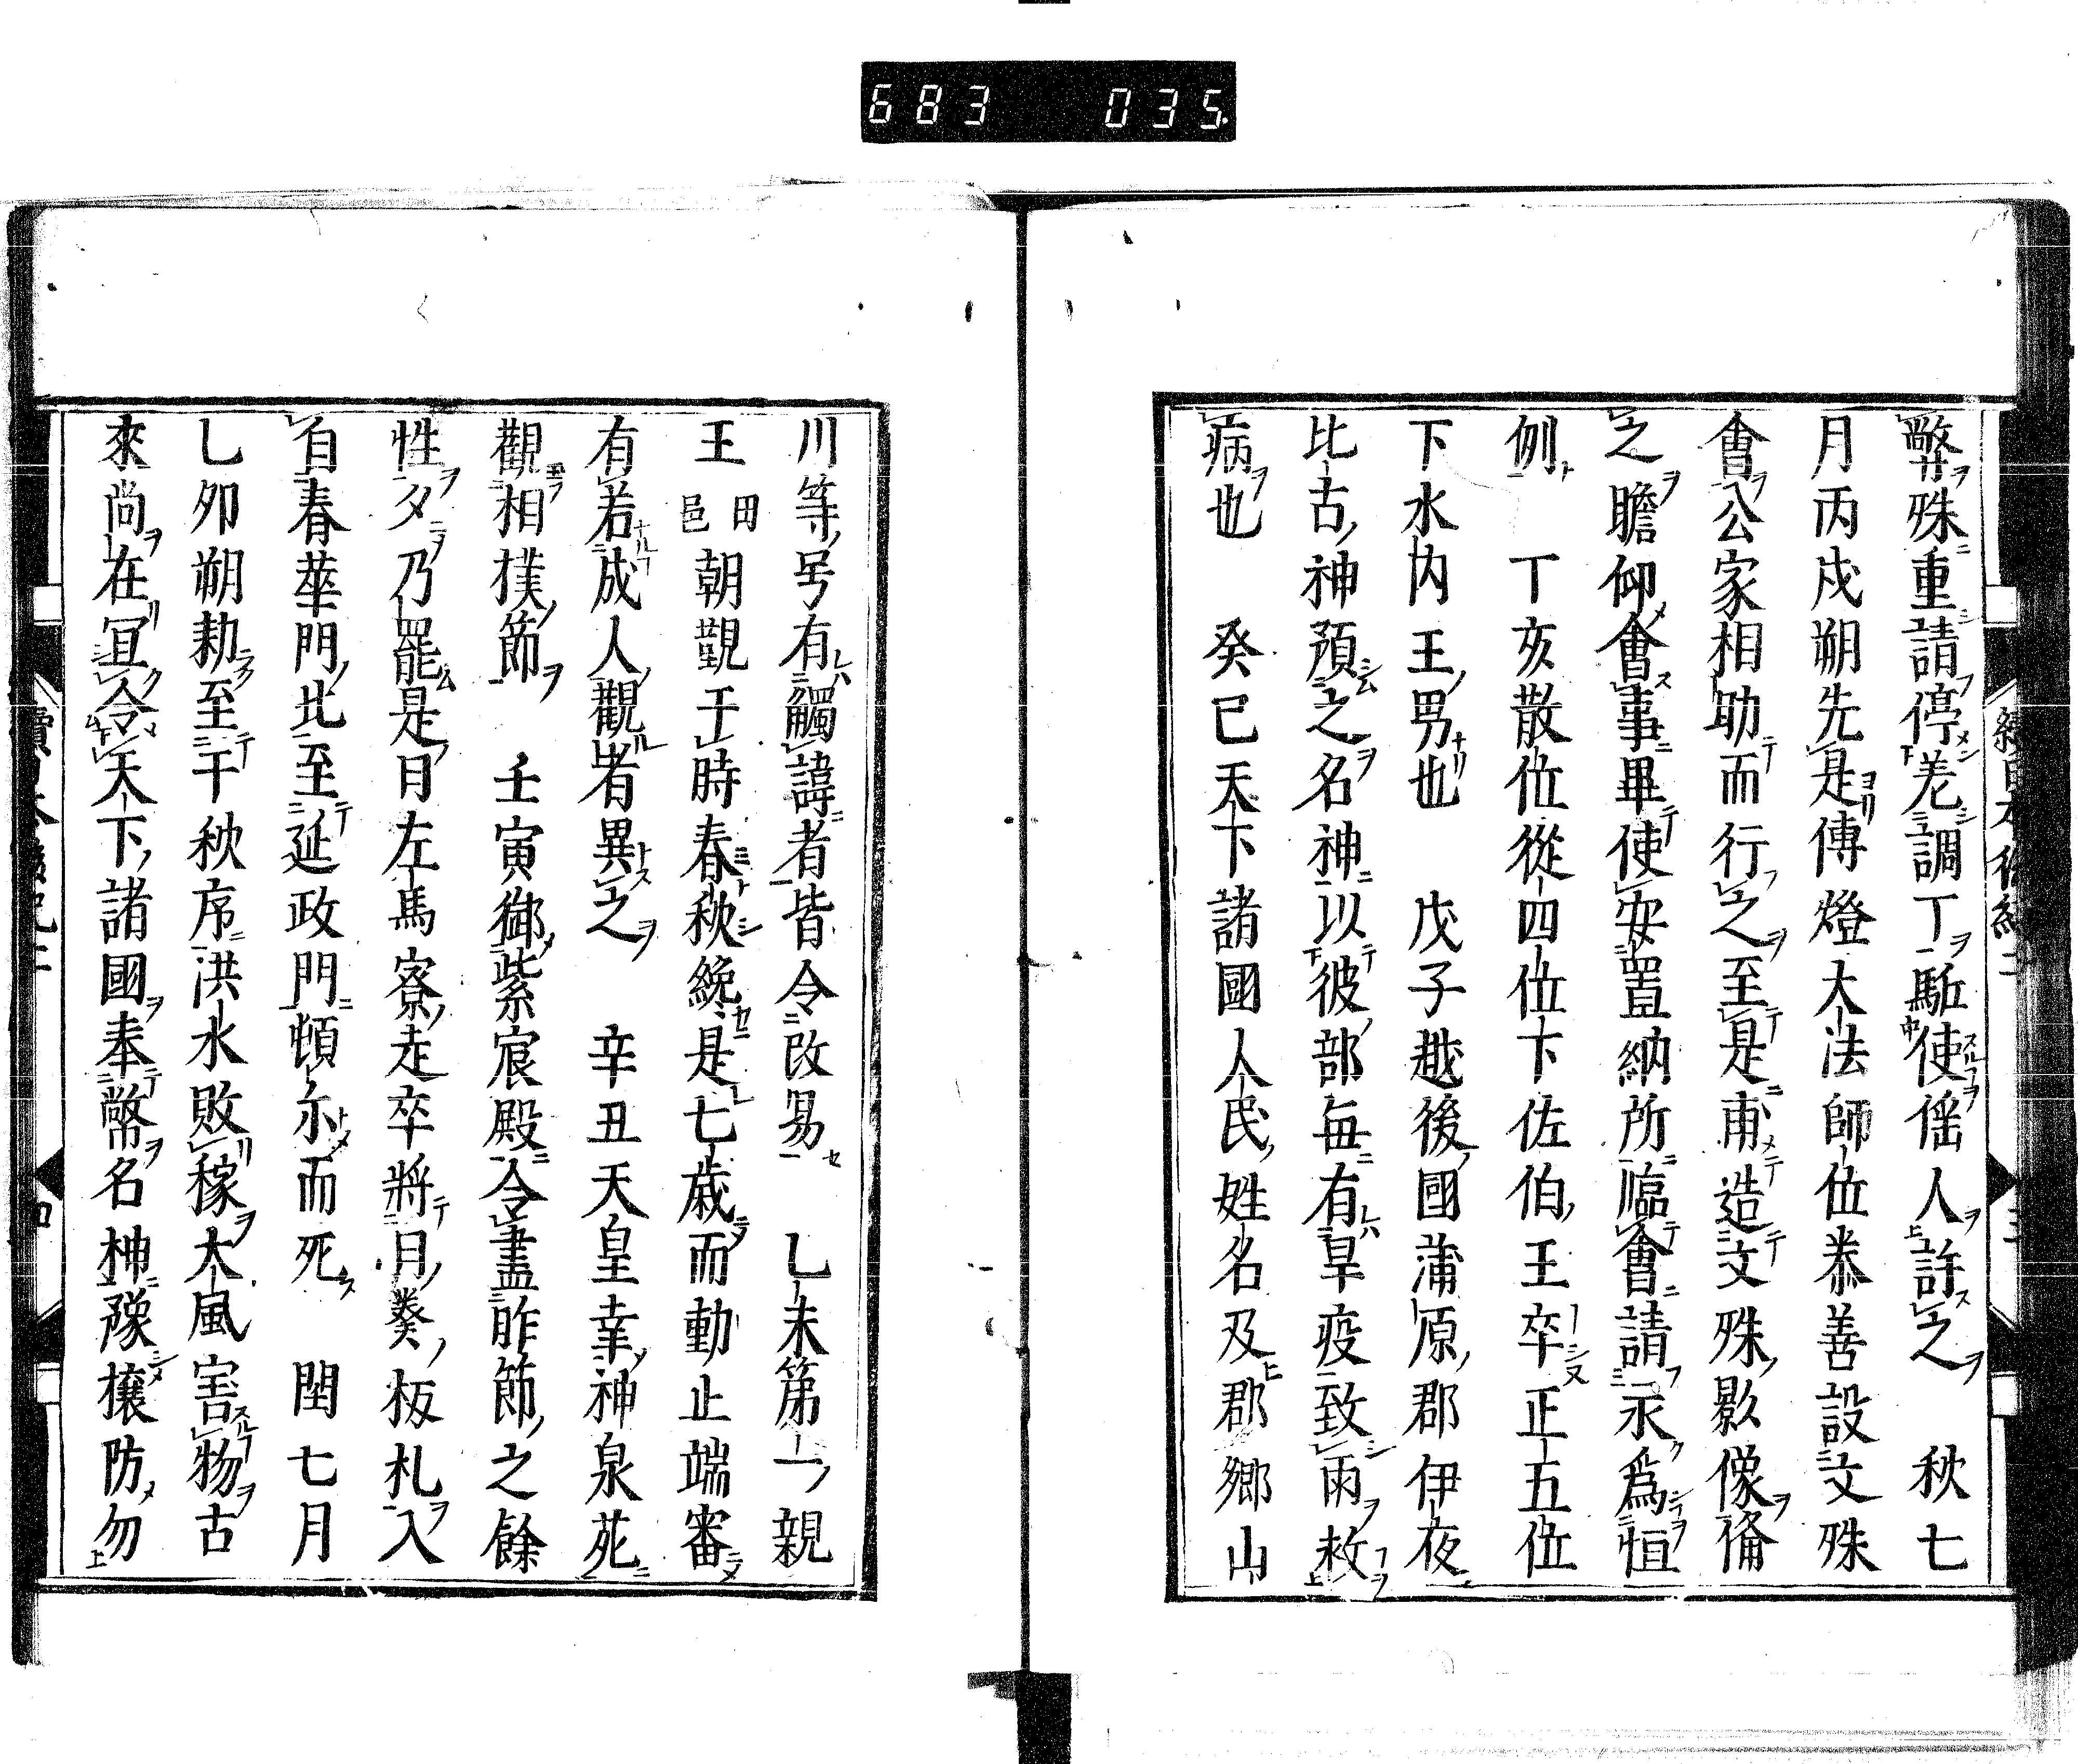 683 035
弊殊重請停差調丁駈使傜人許之　秋七
月丙戌朔先是傳燈大法師位泰善設文殊
會公家相助而行之至是甫造文殊影像備
之瞻仰會事畢使安置納所臨會請永爲恒
例　丁亥散位從四位下佐伯王卒正五位
下水内王男也　戊子越後國蒲原郡伊夜
比古神預之名神以彼部毎有旱疫致雨救
病也　癸巳天下諸國人民姓名及郡郷山
川等号有觸諱者皆令改易　乙未第一親
王田邑朝覲于時春秋纔是七歳而動止端審
有若成人觀者異之　辛丑天皇幸神泉苑
觀相撲節　壬寅御紫宸殿令盡昨節之餘
性夕乃罷是日左馬寮走卒將日癸板札入
自春華門北至延政門頓尓而死　閏七月
乙夘朔勑至于秋序洪水敗稼大風害物古
來尚在冝令天下諸國奉幣名神豫攘防勿